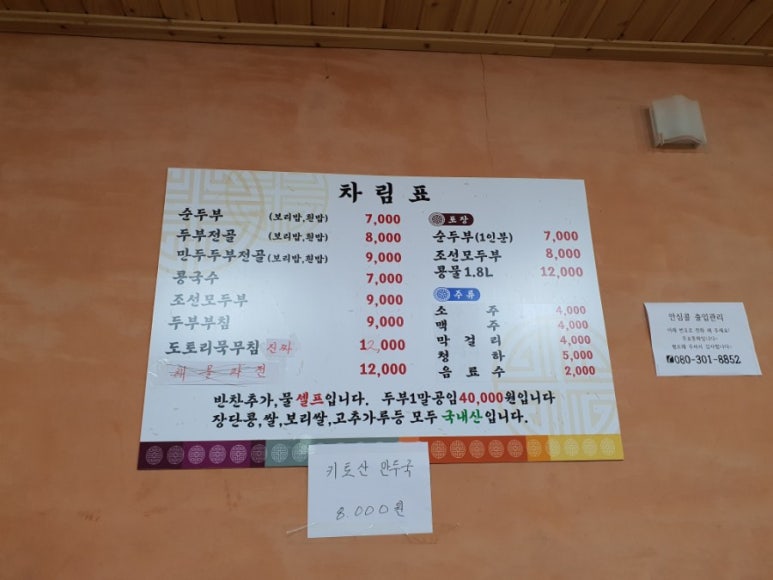 차림표
순두부 (보리밥,흰밥) 7,000
두부전골 (보리밥,흰밥) 8,000
만두두부전골 (보리밥,흰밥) 9,000
콩국수 7,000
조선모두부 9,000
두부부침 9,000
도토리묵무침 진짜 12,000
해물파전 12,000
포장
순두부(1인분) 7,000
조선모두부 8,000
콩물 1.8L 12,000
주류
소주 4,000
맥주 4,000
막걸리 4,000
청하 5,000
음료수 2,000
반찬추가,물 셀프입니다. 두부1말공임40,000원입니다
장단콩,쌀,보리쌀,고추가루등 모두 국내산입니다.
키토산 만두국
8.000원
안심콜 출입관리
아래 번호로 전화 해 주세요!
080-301-8852